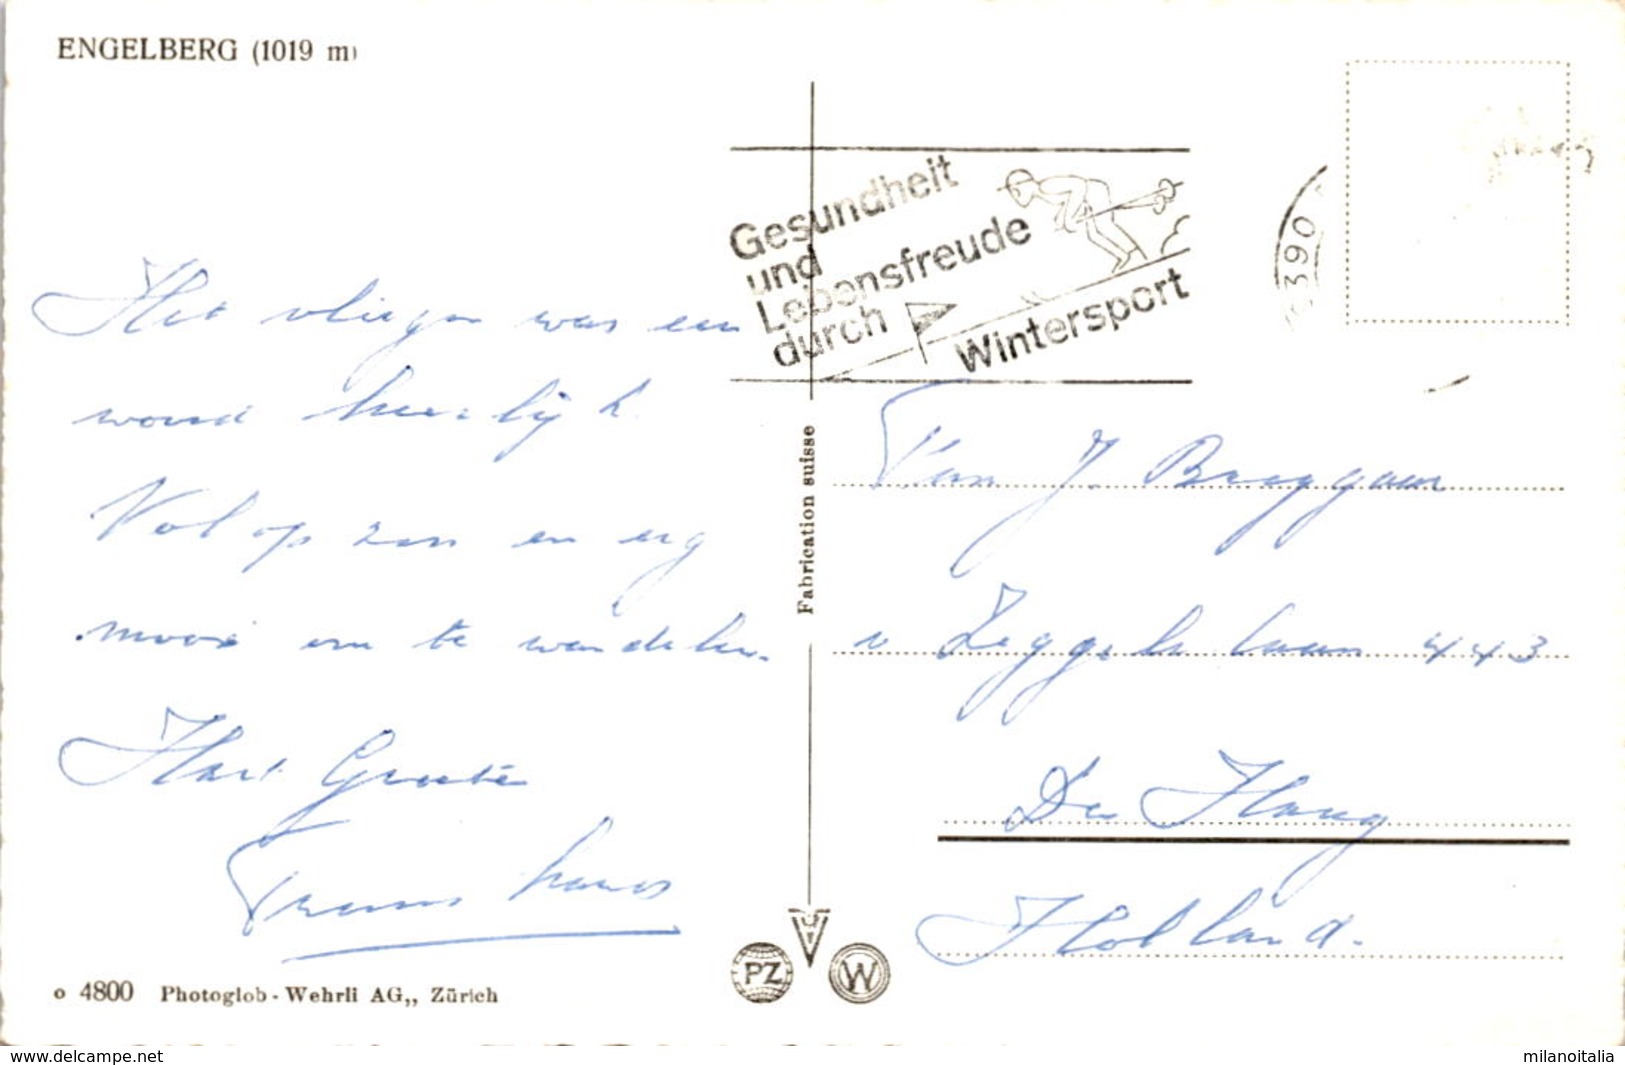 ENGELBERG (1019 m)
Gesundheit
und
Lebensfreude
durch
Wintersport
6390
Het vliegen was een
woord heerlijk.
Volop zon en erg
mooi om te wandelen.
Hart. Groeten
Frans
Fabrication suisse
Fam J. Bruggeman
v Zeggelenlaan 443
Den Haag
Holland.
PZ
W
4800 Photoglob-Wehrli AG,, Zürich
www.delcampe.net
milanoitalia